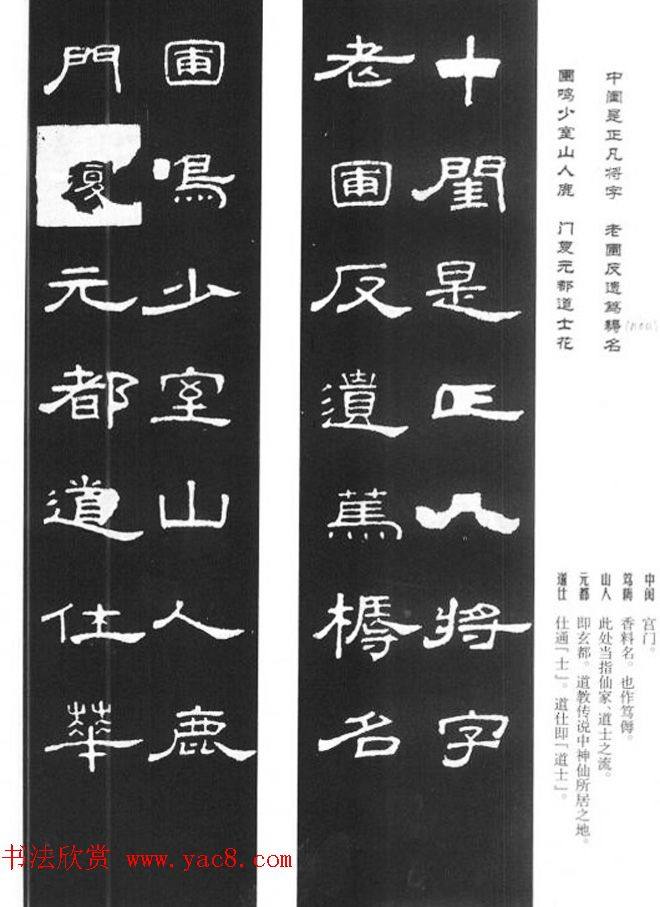 中闺是正凡将字　老圃反遗笃耨名
圃鸣少室山人鹿　门夏元都道士花
中闺　宫门。
笃耨　香料名。也作笃傉。
山人　此处当指仙家、道士之流。
元都　即玄都。道教传说中神仙所居之地。
道仕　仕通「士」。道仕即「道士」。
十閨是正凡將字
老圃反遺篤耨名
圃鳴少室山人鹿
門夏元都道仕華
书法欣赏 www.yac8.com